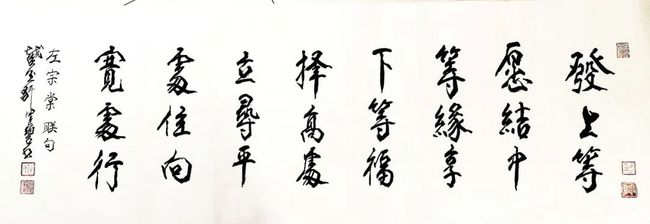 發上等
愿结中
等緣享
下等福
择高處
立尋平
處住向
寬處行
左宗棠联句